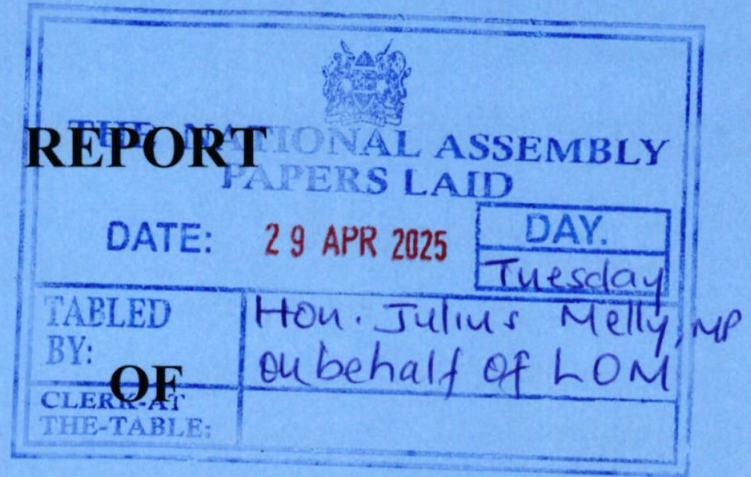 REPORT
THE NATIONAL ASSEMBLY
PAPERS LAID
DATE: 29 APR 2025 DAY.
Tuesday
TABLED BY: Hon. Julius Melly, MP
on behalf of LOM
OF
CLERK-AT
THE-TABLE: